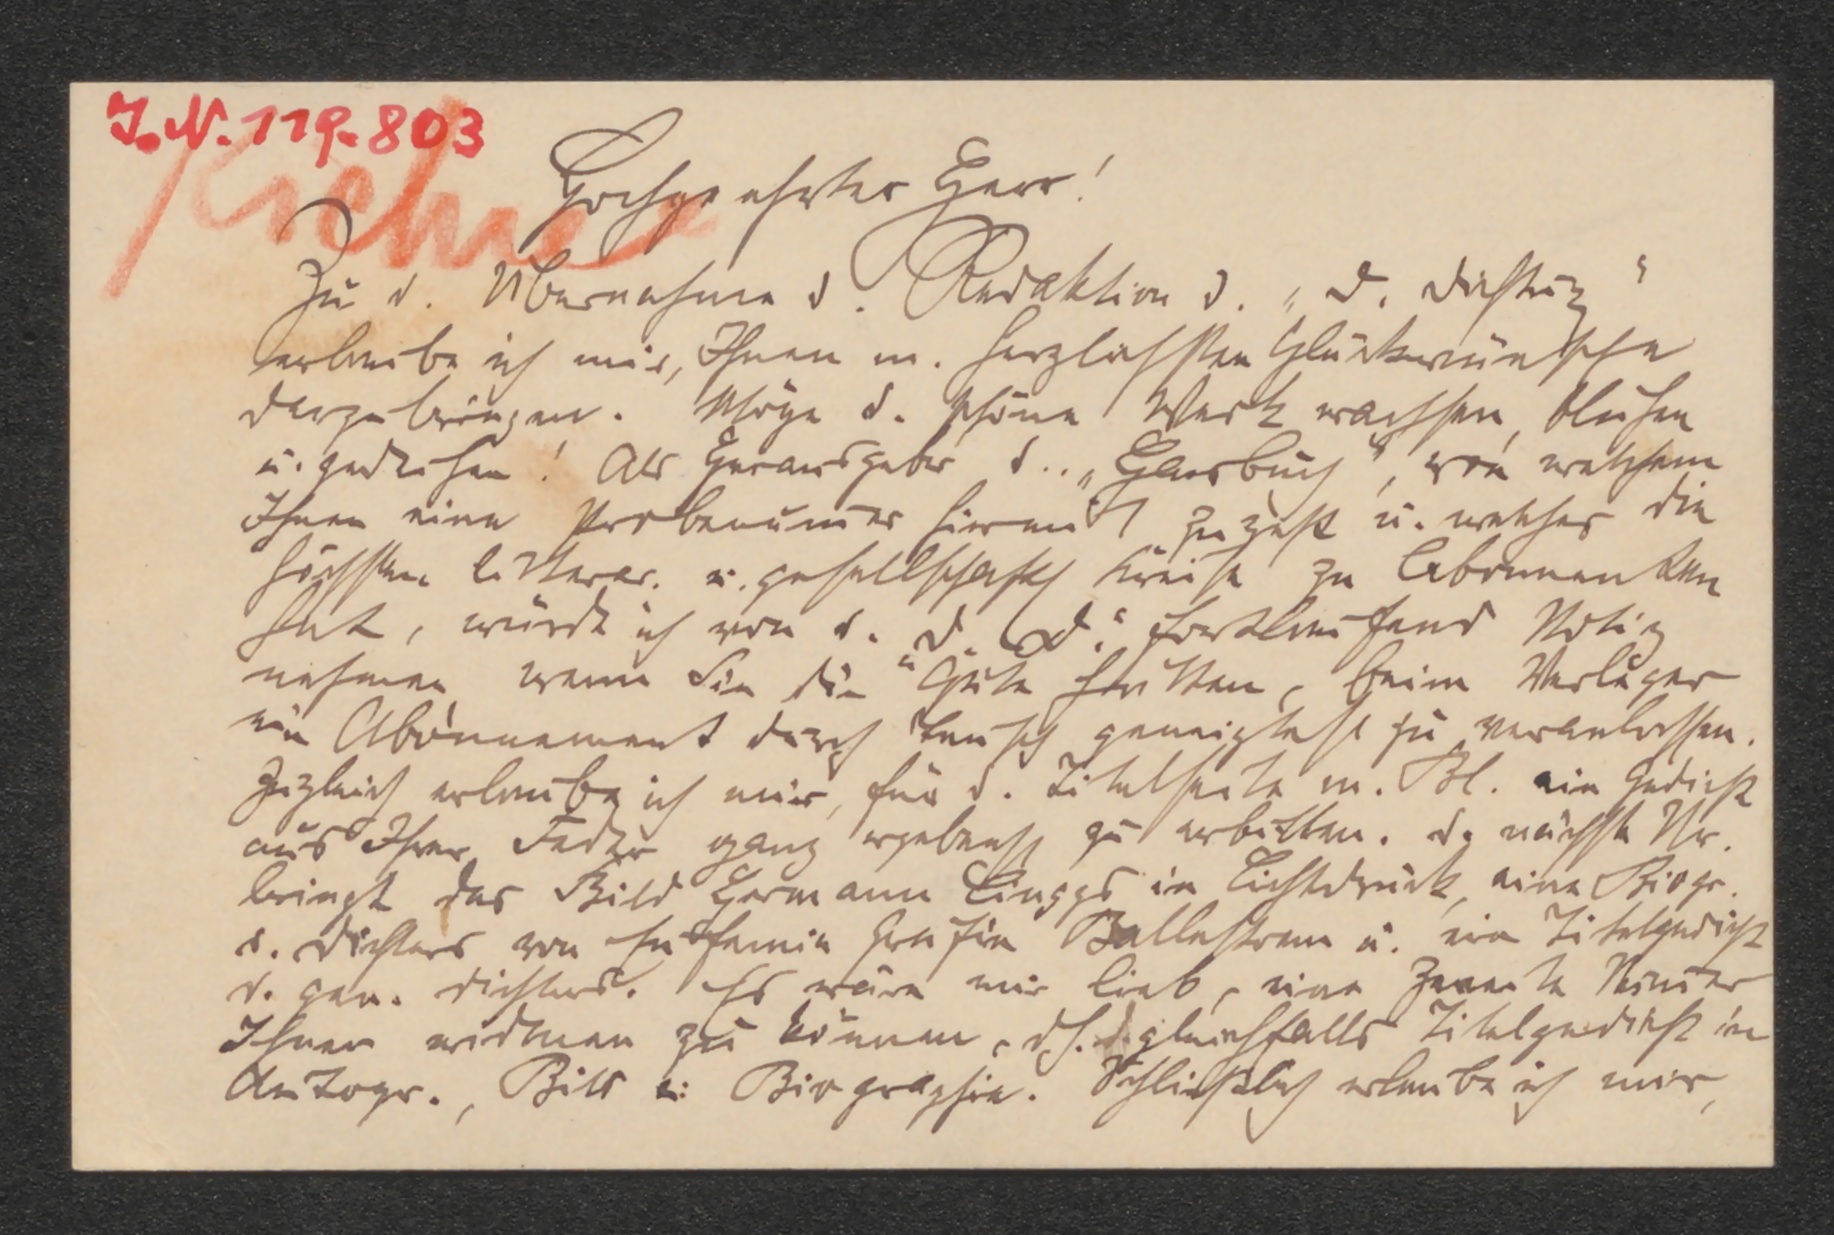 I.N. 119.803
Hochgeehrter Herr!
Zu d. Übernahme d. Redaktion d. „D. Dichtung"
erlaube ich mir, Ihnen m. herzlichsten Glückwünsche
darzubringen. Möge d. schöne Werk wachsen, blühen
u. gedeihen! Als Herausgeber d. „ ", von welchem
Ihnen eine Probenummer hiermit zugeht u. welches die
höchsten litterar. u. gesellschaftl Kreise zu Abonnenten
hat, würde ich von d. „D. D." fortlaufend Notiz
nehmen wenn Sie die Güte hätten, beim Verleger
ein Abonnement durch Tausch geneigtest zu veranlassen.
Zugleich erlaube ich mir, für d. Titelseite m. Bl. ein Gedicht
aus Ihrer Feder ganz ergebenst zu erbitten. d. nächste Nr.
bringt das Bild Hermann Linggs in Lichtdruck, eine Biogr.
d. Dichters von Eufemia Gräfin Ballestrem u. ein Titelgedicht
d. gen. Dichters. Es wäre mir lieb, eine zweite Numer
Ihnen widmen zu können, dh. gleichfalls Titelgedicht in
Autogr., Bild u: Biographie. Schließlich erlaube ich mir,